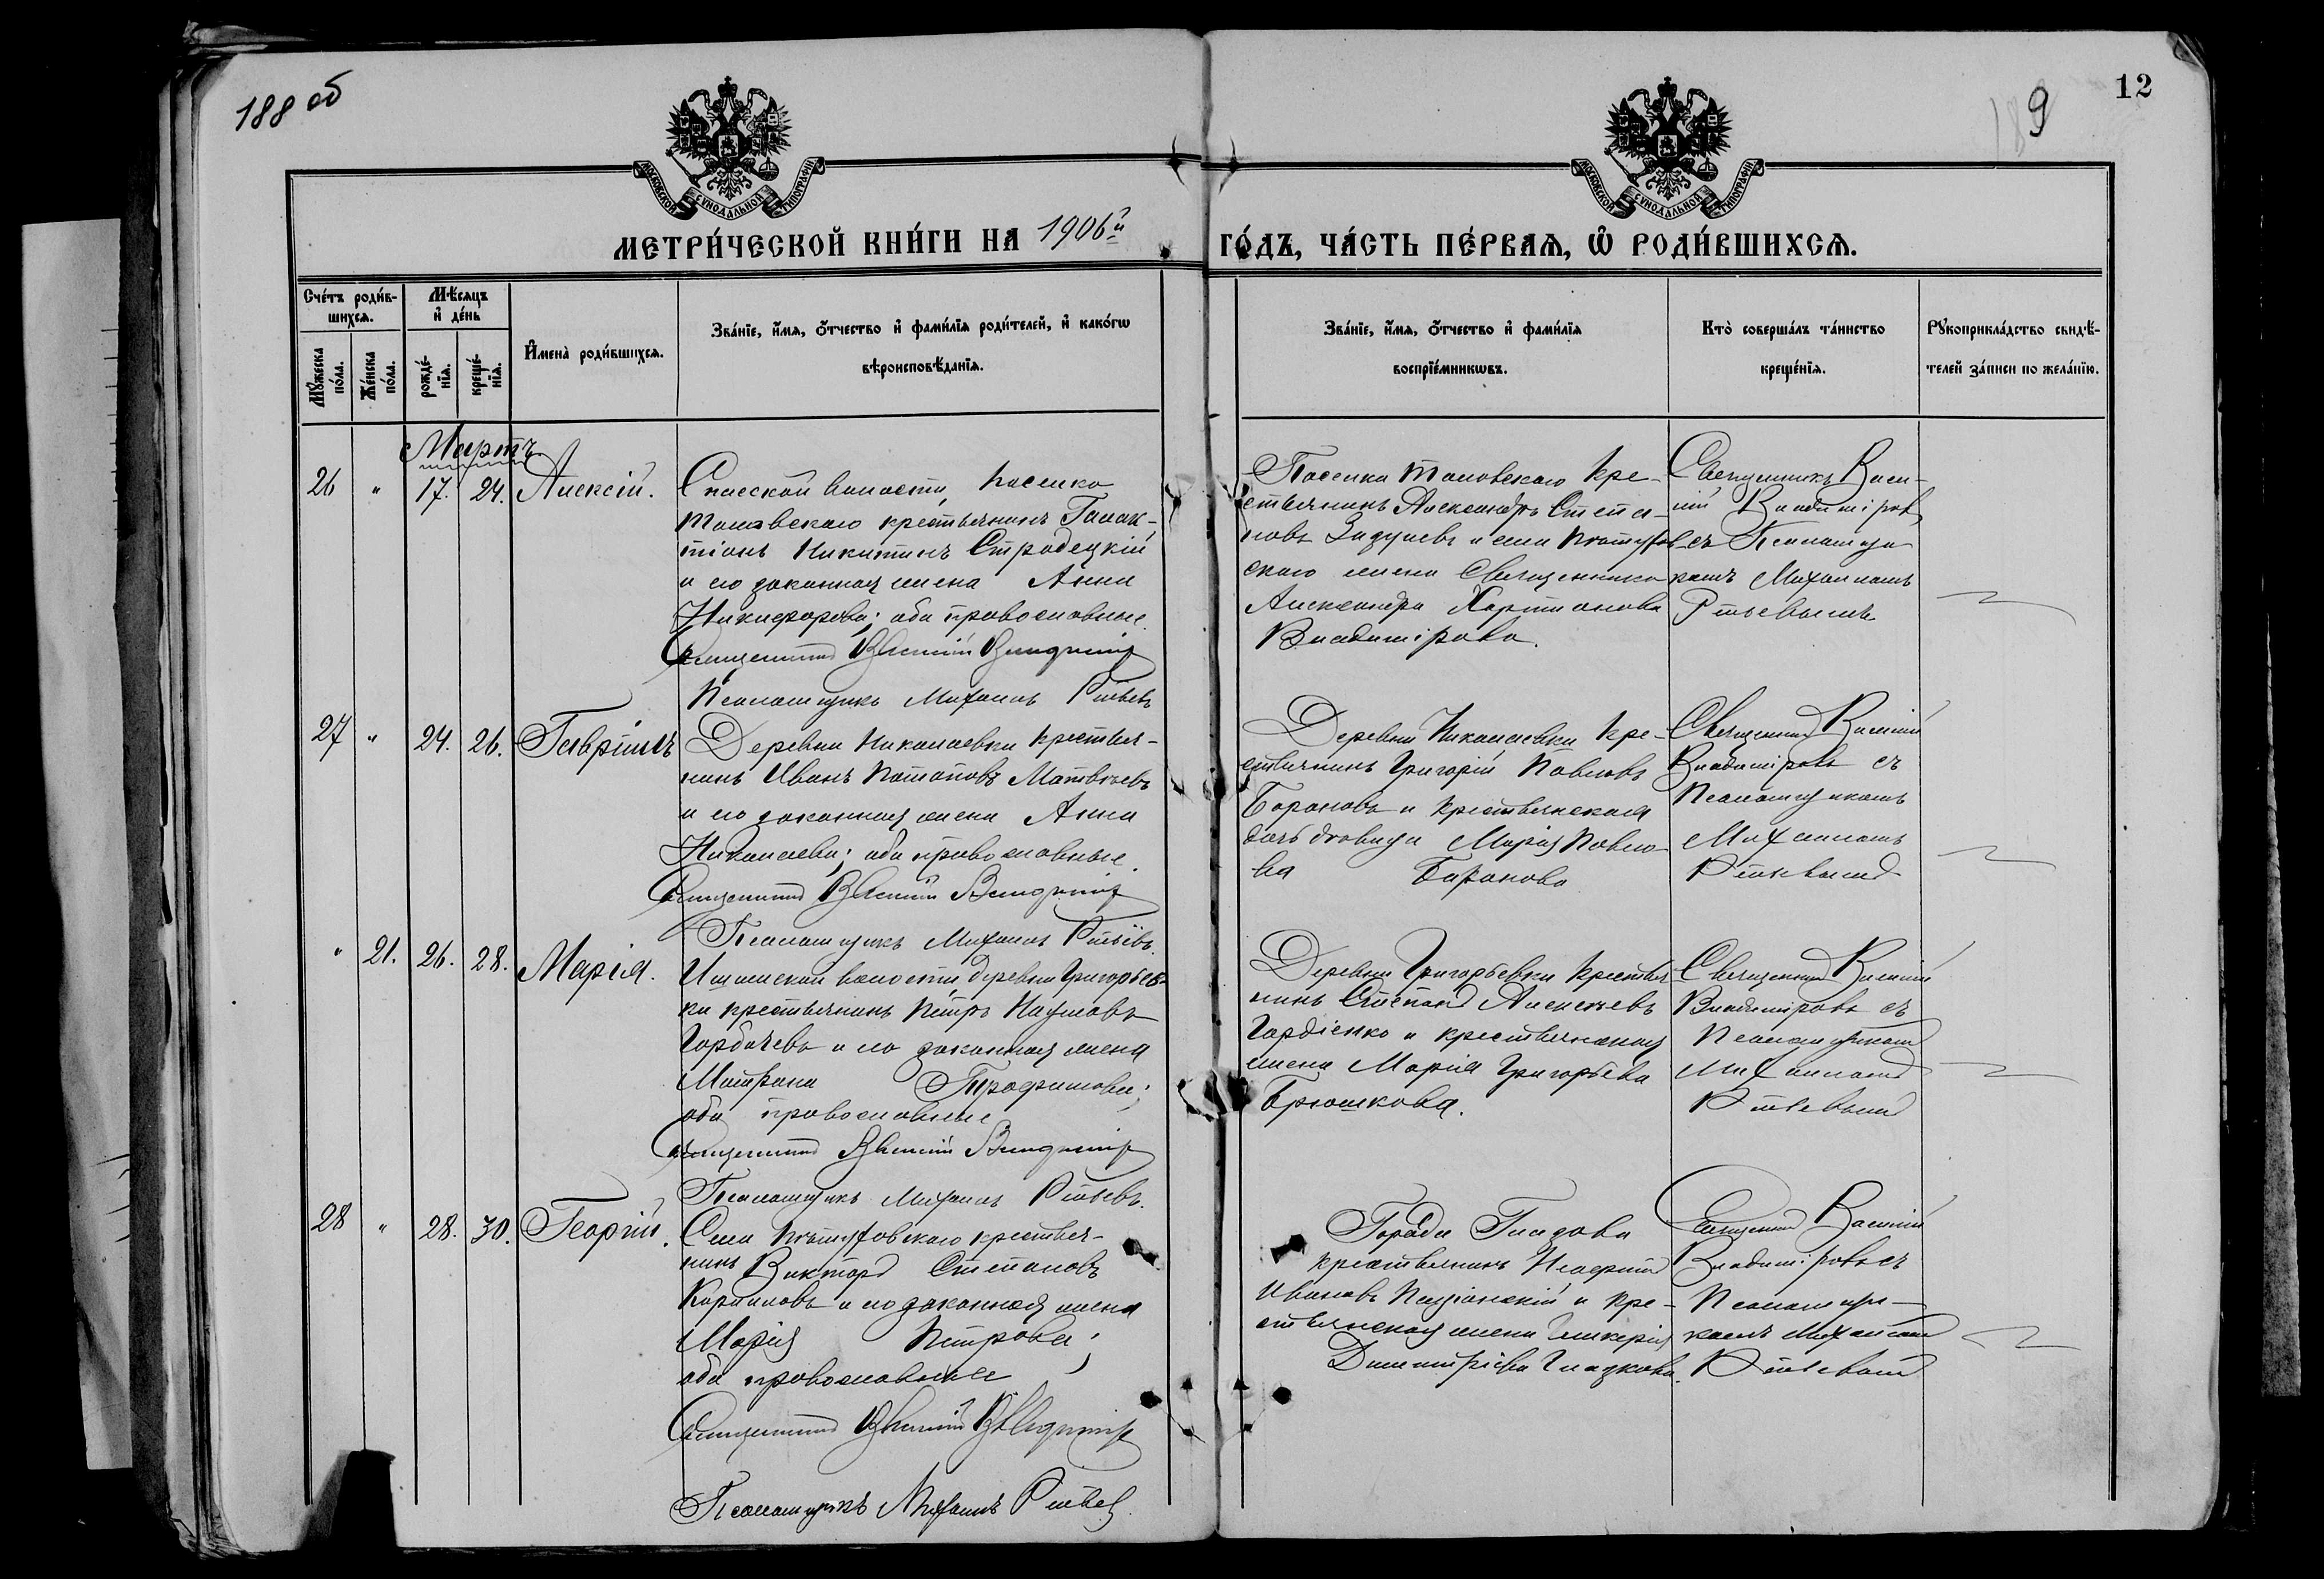 188 об
12
189
МОСКОВСКОЙ СѴНОДАЛЬНОЙ ТИПОГРАФІИ
МОСКОВСКОЙ СѴНОДАЛЬНОЙ ТИПОГРАФІИ
МЕТРИ́ЧЕСКОЙ КНИ́ГИ НА 1906й ГО́ДЪ, ЧА́СТЬ ПЕ́РВАѦ, Ѡ РОДИ́ВШИХСѦ.
Сче́тъ роди́в-
шихсѧ.
Мꙋ́жеска
по́ла.
Же́нска
по́ла.
Мѣ́сѧцъ
и҆ де́нь
рожде́-
нїѧ.
креще́-
нїѧ.
И҆мена̀ роди́вшихсѧ.
Зва́нїе, и҆́мѧ, ѻ҆́тчество и҆ фами́лїѧ роди́телей, и҆ како́гѡ
вѣроисповѣ́данїѧ.
Зва́нїе, и҆́мѧ, ѻ҆́тчество и҆ фами́лїѧ
воспрїе́мникѡвъ.
Кто̀ соверша́лъ та́инство
креще́нїѧ.
Рꙋкоприкла́дство свидѣ́-
телей за́писи по жела́нїю.
Мартъ
26 " 17. 24. Алексій.
Спасской волости, поселка
Таловскаго крестьянинъ Галак-
тіонъ Никитинъ Стродецкій
и его законная жена Анна
Никифорова; оба православные.
Священникъ Василій Владиміровъ
Псаломщикъ Михаилъ
Поселка Таловскаго кре-
стьянинъ Александръ Степа-
новъ и села
скаго жена Священника
Александра Харитонова
Владимірова.
Священникъ Васи-
лій Владиміровъ
съ Псаломщи-
комъ Михаиломъ
27 " 24. 26. Гавріилъ
Деревни Николаевки крестья-
нинъ Иванъ Потаповъ Матвѣевъ
и его законная жена Анна
Николаева; оба православные.
Священникъ Василій Владиміровъ
Псаломщикъ Михаилъ
Деревни Николаевки кре-
стьянинъ Григорій Павловъ
Барановъ и крестьянская
дочь дѣвица Марія Павло-
ва Баранова
Священникъ Василій
Владиміровъ съ
Псаломщикомъ
Михаиломъ
" 21. 26. 28. Марія.
волости, деревни Григорьев-
ки крестьянинъ Петръ Наумовъ
Горбачевъ и его законная жена
Матрона Трофимова;
оба православные
Священникъ Василій Владиміровъ
Псаломщикъ Михаилъ
Деревни Григорьевки крестья-
нинъ Степанъ Алексѣевъ
Гордіенко и крестьянская
жена Марія Григорьева
Брюшкова.
Священникъ Василій
Владиміровъ съ
Псаломщикомъ
Михаиломъ
28 " 28. 30. Георгій.
Села крестья-
нинъ Викторъ Степановъ
Карповъ и его законная жена
Марія Петрова;
оба православные
Священникъ Василій Владиміровъ
Псаломщикъ Михаилъ
Города
крестьянинъ
Ивановъ и кре-
стьянская жена Гликерія
Димитріева Гладкова.
Священникъ Василій
Владиміровъ съ
Псаломщи-
комъ Михаиломъ